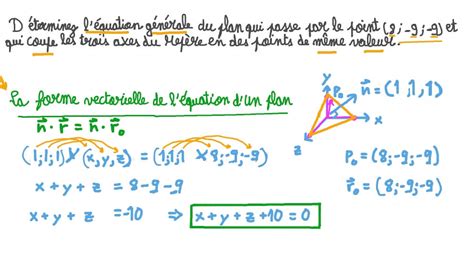 Déterminez l'équation générale du plan qui passe par le point (8;-9;-9) et
qui coupe les trois axes du repère en des points de même valeur.
La forme vectorielle de l'équation d'un plan
n⃗ · r⃗ = n⃗ · r⃗₀
(1;1;1) · (x,y,z) = (1;1;1) · (8;-9;-9)
x + y + z = 8-9-9
x + y + z = -10 ⇒ x + y + z + 10 = 0
y
P₀
x
z
n⃗ = (1,1,1)
P₀ = (8;-9;-9)
r⃗₀ = (8;-9;-9)